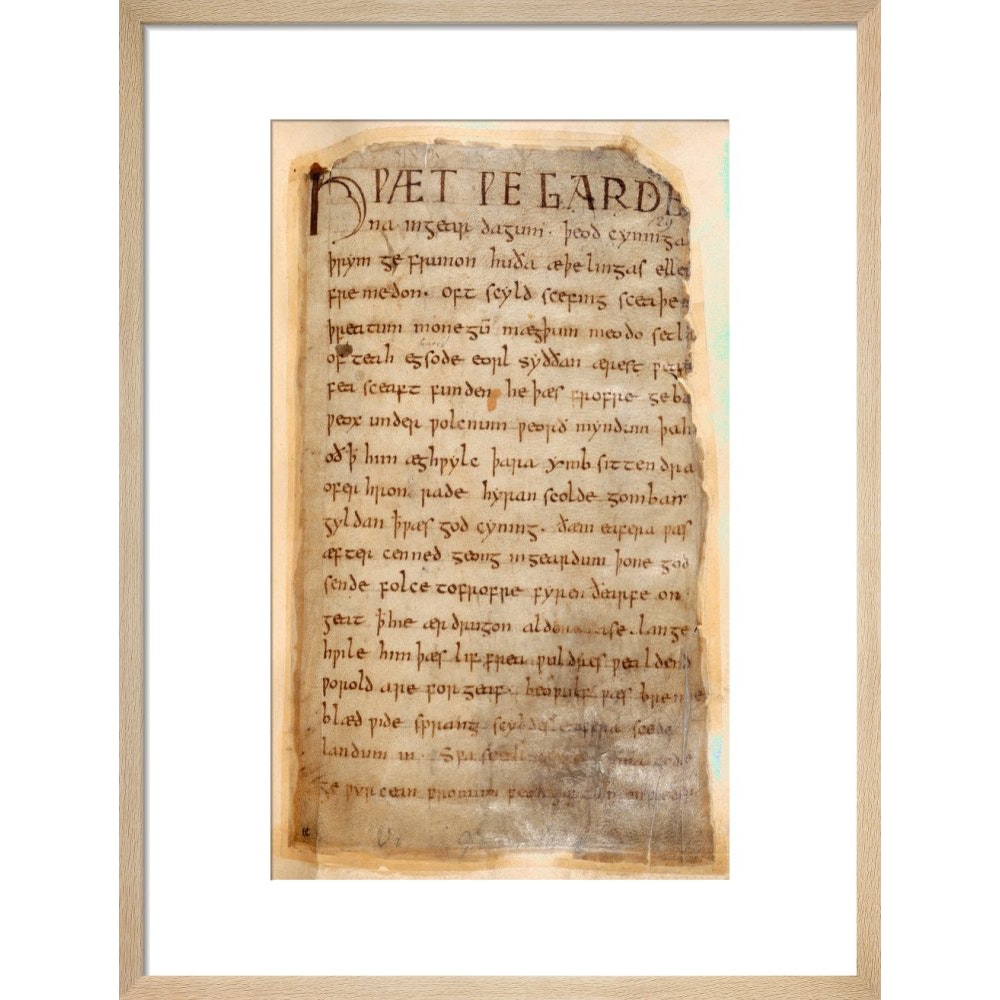 HǷÆT ǷE GARDE
na ingear dagum. þeod cyninga
þrym ge frunon huða æþelingas elle
fremedon. oft scyld scefing sceaþe
þreatum monegū mægþum meodo setla
of teah egsode eorl syððan ærest ƿear
fea sceaft funden he þæs frofre geba
ƿeox under ƿolcnum ƿeorð myndum þah
oð ꝥ him æghƿylc þara ymb sittendra
ofer hron rade hyran scolde gomban
gyldan ꝥ ƿæs god cyning. ðæm eafera ƿæs
æfter cenned geong ingeardum þone god
sende folce tofrofre fyren ðearfe on
geat ꝥ hie ær drugon aldor ase. lange
hƿile him þæs lif frea ƿuldres ƿealdend
ƿorold are for geaf. beoƿulf ƿæs breme
blæd ƿide sprang scyldes eafera scede
landum in. Sƿa sceal uma gode
ge ƿyrcean fromum feoh